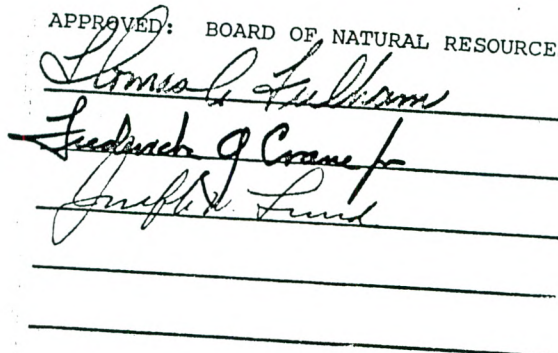 APPROVED: BOARD OF NATURAL RESOURCE
Thomas A Fulham
Frederick J Crane Jr
Joseph W. Lund